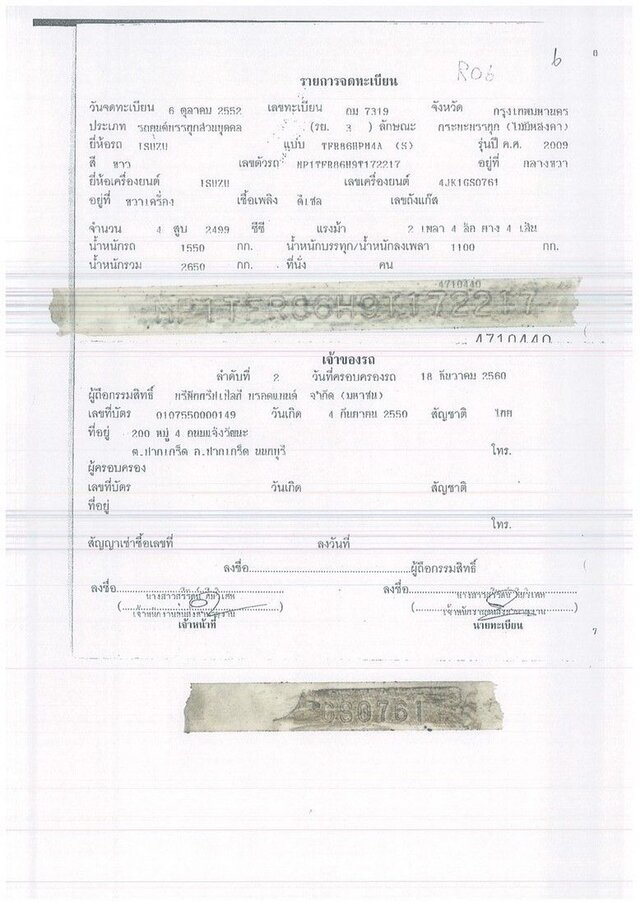 6
R06
6
รายการจดทะเบียน
วันจดทะเบียน 6 ตุลาคม 2552 เลขทะเบียน ถม 7319 จังหวัด กรุงเทพมหานคร
ประเภท รถยนต์บรรทุกส่วนบุคคล (รย. 3 ) ลักษณะ กระบะบรรทุก (ไม่มีหลังคา)
ยี่ห้อรถ ISUZU แบบ TFR86HPM4A (S) รุ่นปี ค.ศ. 2009
สี ขาว เลขตัวรถ MP1TFR86H9T172217 อยู่ที่ กลางขวา
ยี่ห้อเครื่องยนต์ ISUZU เลขเครื่องยนต์ 4JK1GS0761
อยู่ที่ ขวาเครื่อง เชื้อเพลิง ดีเซล เลขถังแก๊ส
จำนวน 4 สูบ 2499 ซีซี แรงม้า 2 เพลา 4 ล้อ ยาง 4 เส้น
น้ำหนักรถ 1550 กก. น้ำหนักบรรทุก/น้ำหนักลงเพลา 1100 กก.
น้ำหนักรวม 2650 กก. ที่นั่ง คน
4710440
MP1TFR86H9T172217
4710440
เจ้าของรถ
ลำดับที่ 2 วันที่ครอบครองรถ 18 ธันวาคม 2560
ผู้ถือกรรมสิทธิ์ จำกัด (มหาชน)
เลขที่บัตร 0107550000149 วันเกิด 4 กันยายน 2550 สัญชาติ ไทย
ที่อยู่ 200 หมู่ 4 ถนนแจ้งวัฒนะ
ต.ปากเกร็ด อ.ปากเกร็ด นนทบุรี โทร.
ผู้ครอบครอง
เลขที่บัตร วันเกิด สัญชาติ
ที่อยู่
โทร.
สัญญาเช่าซื้อเลขที่ ลงวันที่
ลงชื่อ ผู้ถือกรรมสิทธิ์
ลงชื่อ ลงชื่อ
เจ้าหน้าที่ นายทะเบียน
7
GS0761